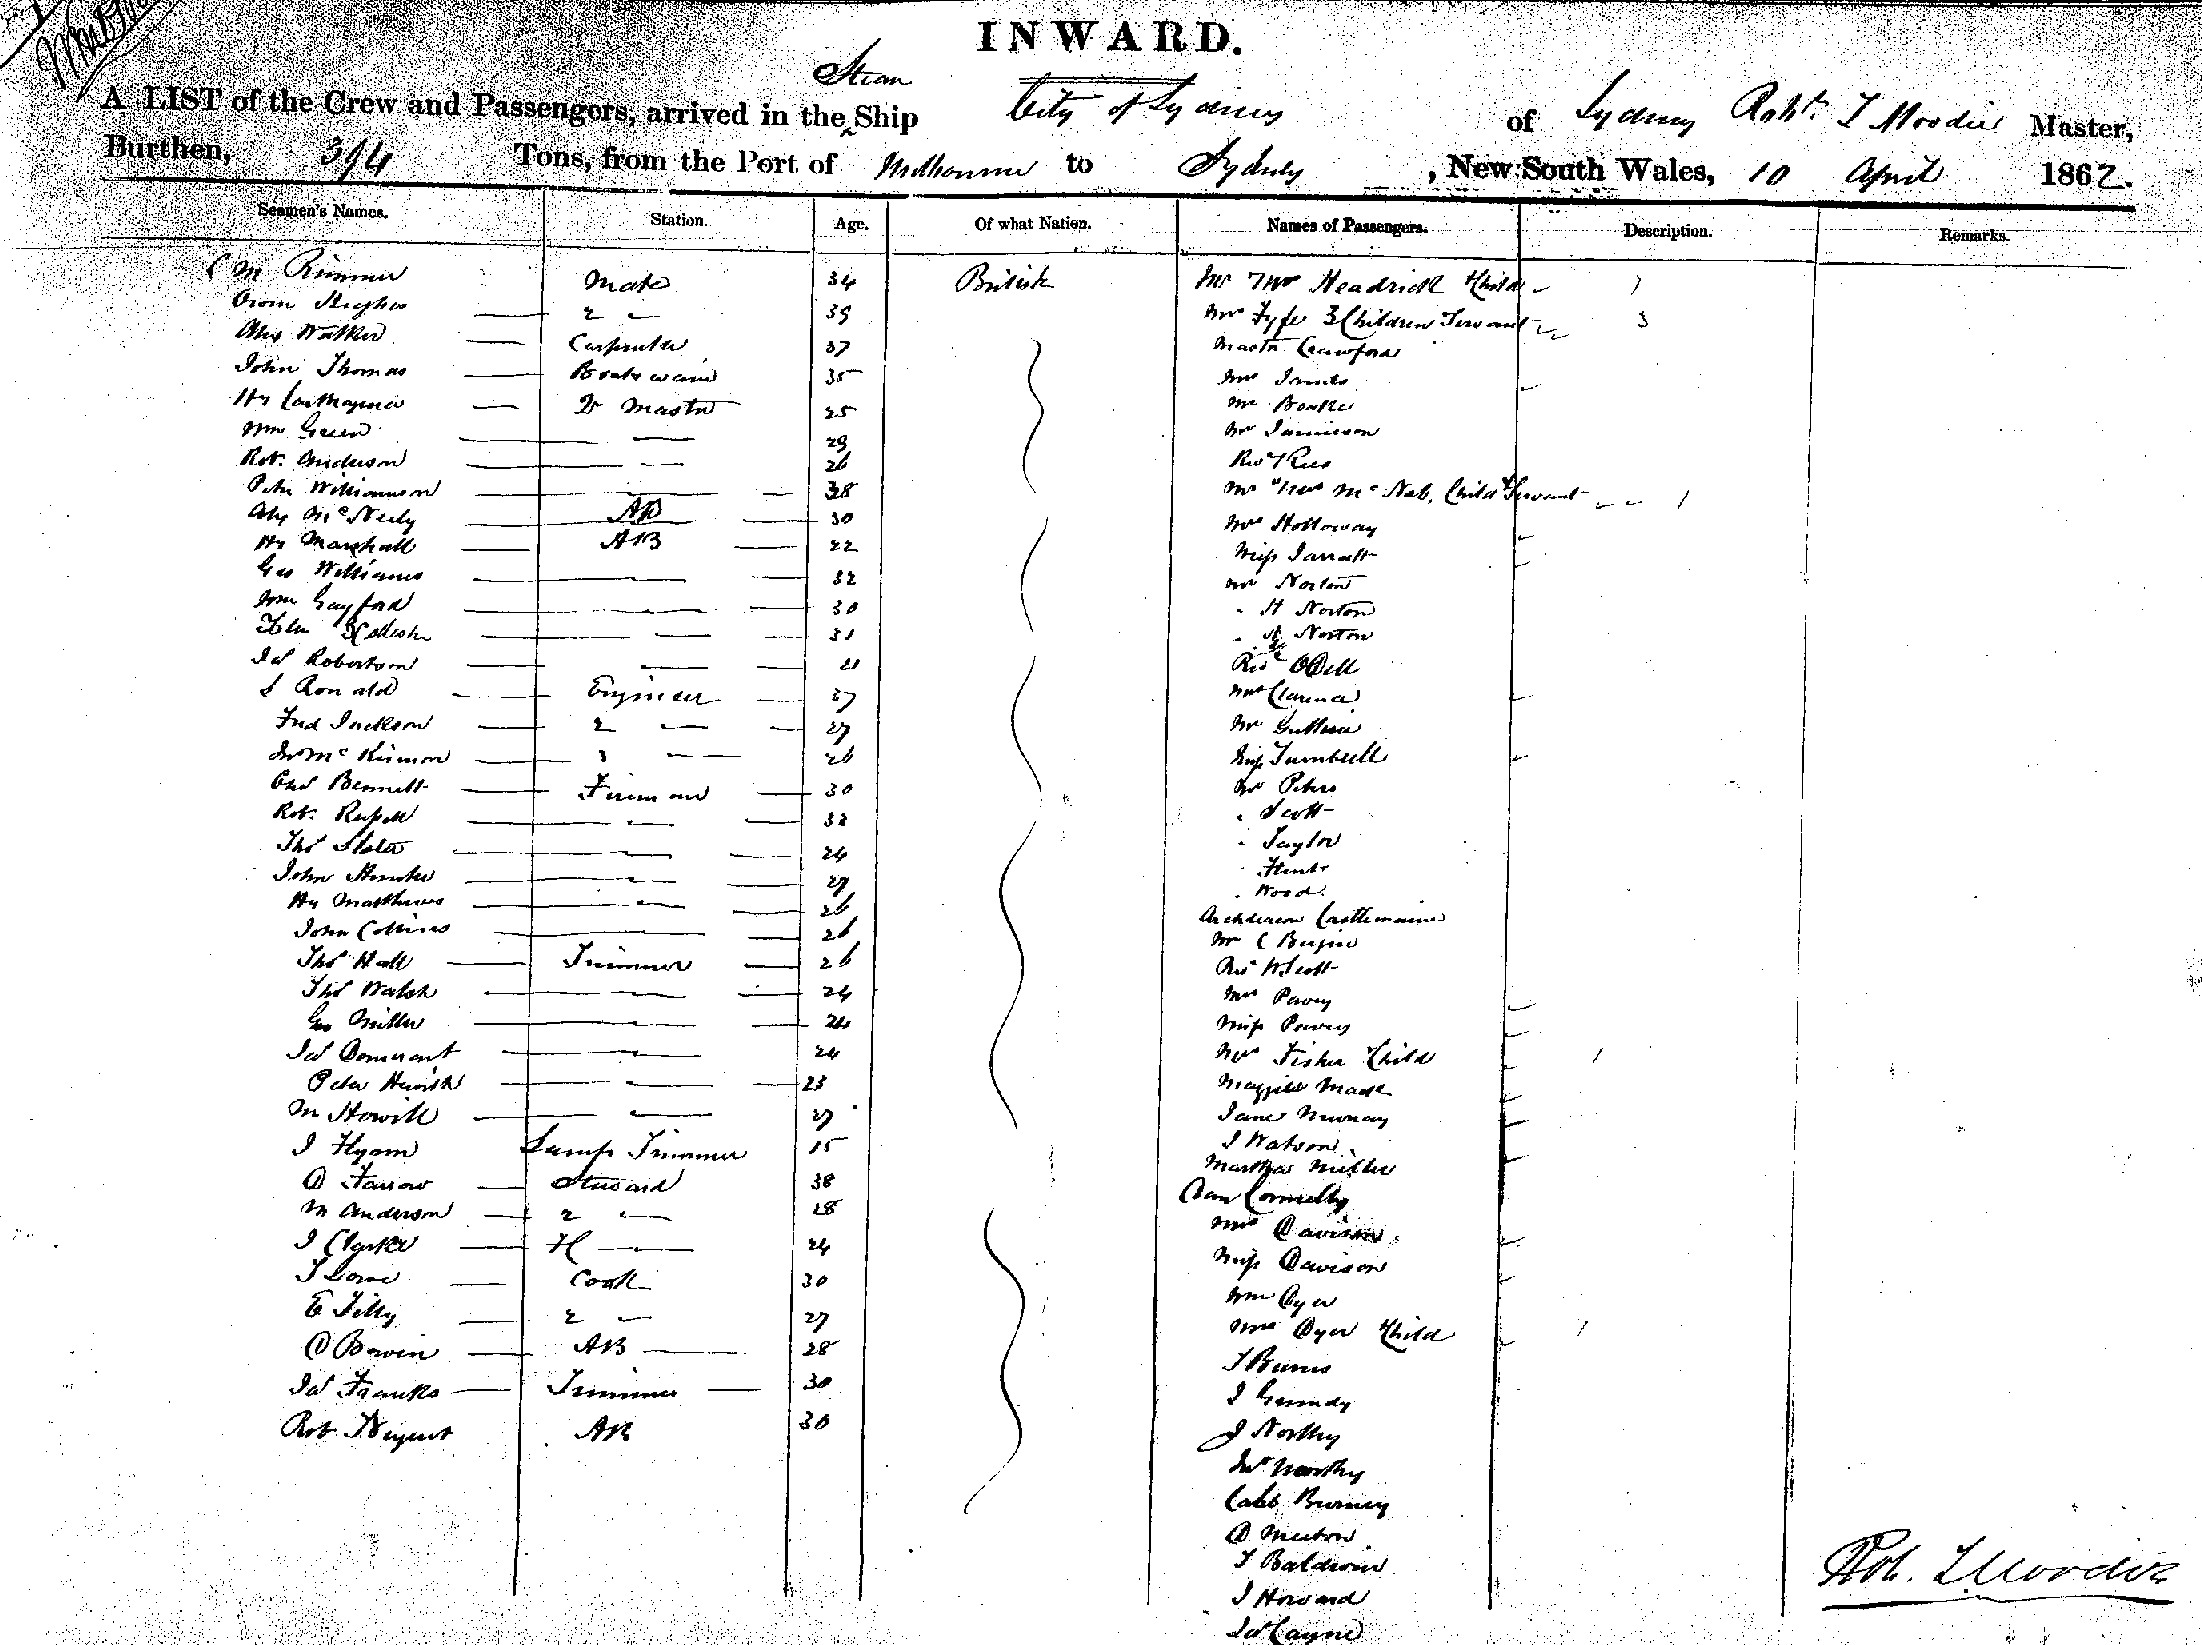 INWARD.
Steam
A LIST of the Crew and Passengers, arrived in the Ship City of Sydney of Sydney Robt. T Moodie Master,
Burthen, 394 Tons, from the Port of Melbourne to Sydney, New South Wales, 10 April 1862.
Seamen's Names. Station. Age. Of what Nation. Names of Passengers. Description. Remarks.
C M Rimmer Mate 34 British Mr & Mrs Headrick Child 1
Owen Hughes 2 39 Mrs Fyfe 3 Children Servant 3
Alex Walker Carpenter 37 Mastr Crawford
John Thomas Boatswain 35 Mrs
Hy 2r Mastr 25 Mr
Wm Green 29 Mr Jamieson
Rob. Anderson 26 Revd Rees
Peter Williamson 38 Mr & Mrs McNab, Child & Servant 1
Alex McNeely AB 30 Mrs Holloway
Hy Marshall AB 22 Miss Jarratt
Geo Williams 32 Mr Norton
Wm Gayford 30 " H Norton
31 " Norton
Jas Robertson 21 Revd
Ronald Engineer 37 Mrs Clarence
Fred Jackson 2 27 Mr Guthrie
McKinnon 3 26 Miss Turnbull
Chas Bennett Fireman 30 Mr Peters
Rob. Russell 32 " Scott
Thos Slater 24 " Taylor
John 27 "
Hy Matthews 26 " Wood
John Collins 26 Archdeacon Castlemaine
Thos Hall Trimmer 26 Mr C
Thos Walsh 24 Revd W Scott
Geo Miller 24 Mrs Pavey
Jas 24 Miss Pavey
Peter 23 Mrs Fisher & Child 1
M Howill 27 Maggie
J Hyam Lamp Trimmer 15 Jane Murray
D Farrow Steward 38 J Watson
M Anderson 2 28 Martha Miller
J Clarke 24 Dan Connelly
J Cook 30 Mrs Davison
E Tilly 2 27 Miss Davison
D Bowen AB 28 Wm Dyer
Jas Franks Trimmer 30 Mrs Dyer & Child 1
Rob. Nugent AB 30 T Burns
J Grundy
J Northy
Northy
Burney
D
T Baldwin
J Howard
Jas Cayne
Rob. T Moodie